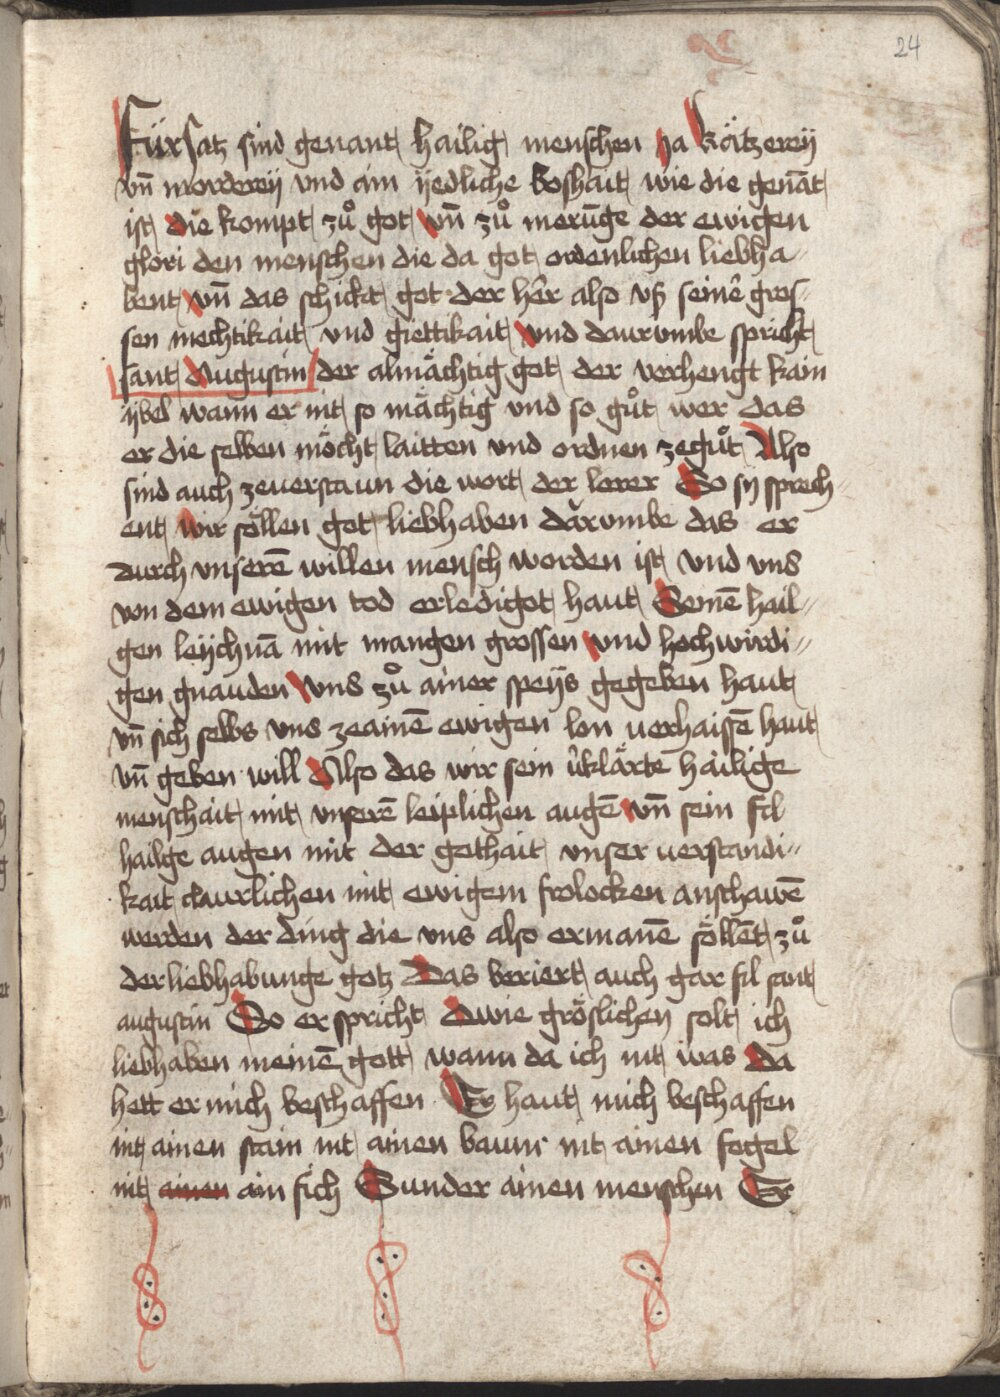 24
Fürsatz sind genant hailig menschen Ja kätzereÿ
vn̄ mordereÿ und ain ÿedliche boshait wie die genāt
ist die kompt zů got vn̄ zů merūge der ewigen
glori den menschen die da got ordenlichen liebha〃
bent vn̄ das schickt got der her̄ also vß seinē gros〃
sen mechtikait und giettikait und darumbe spricht
sant Augustin der almächtig got der verhengt kain
ÿbel wann er nit so mächtig und so gůt wer das
er die selben möcht laitten und ordnen zegůt Also
sind auch zeuerstaun die wort der lerer So sÿ sprech〃
ent wir söllen got liebhaben darumbe das er
durch unserē willen mensch worden ist und uns
von dem ewigen tod erlediget haut Seinē hail〃
gen leÿchnā mit mangen grossen und hochwirdi〃
gen gnauden uns zů ainer speÿs gegeben haut
vn̄ sich selbs uns zeainē ewigen lon verhaissē haut
vn̄ geben will Also das wir sein v̂klärte hailige
menschait mit unserē leiplichen augē vn̄ sein
hailge augen mit der gothait unser verstandi〃
kait claurlichen mit ewigem frolocken anschawē
werden der ding die uns also ermanē söllēt zů
der liebhabunge gotz Das beriert auch gar fil sant
augustin So er spricht O wie gröslichen solt ich
liebhaben meinē gott wann da ich nit was Da
hett er mich beschaffen Er haut mich beschaffen
nit ainen stain nit ainen baum nit ainen fogel
nit ainen ain fich Sunder ainen menschen Er